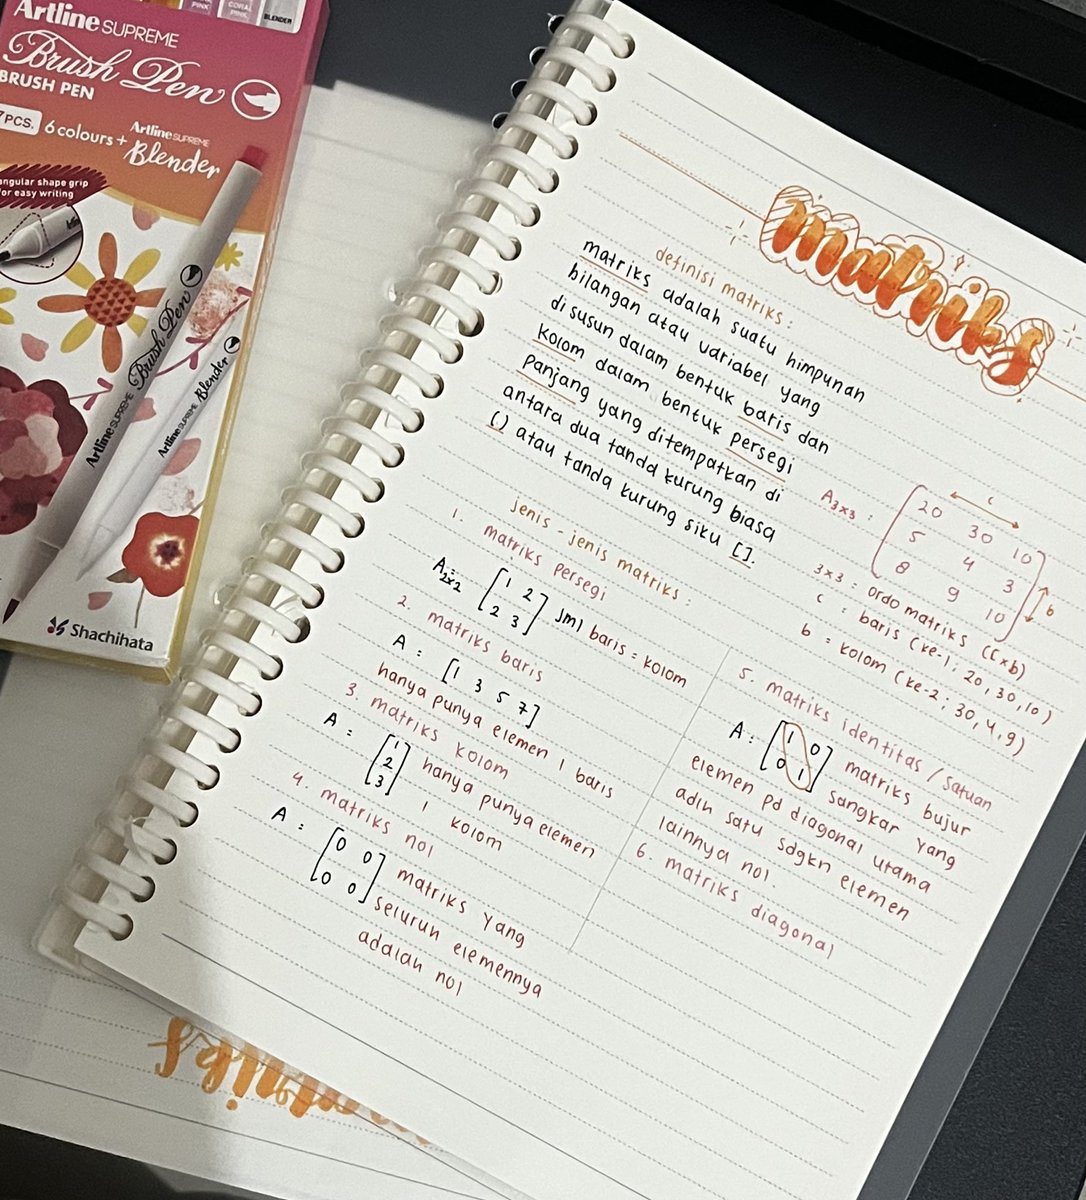 PINK
CORAL PINK
BLENDER
Artline SUPREME
Brush Pen
BRUSH PEN
7PCS.
6 colours +
Artline SUPREME
Blender
angular shape grip
for easy writing
Artline SUPREME Brush Pen
Artline SUPREME Blender
Shachihata
matriks
definisi matriks :
matriks adalah suatu himpunan
bilangan atau variabel yang
di susun dalam bentuk baris dan
kolom dalam bentuk persegi
panjang yang ditempatkan di
antara dua tanda kurung biasa
() atau tanda kurung siku [].
A3x3 :
c
20 30 10
5 4 3
8 9 10
b
3x3 = ordo matriks (c x b)
c = baris (ke-1 ; 20, 30, 10)
b = kolom (ke-2 ; 30, 4, 9)
jenis - jenis matriks :
1. matriks persegi
A2x2 = [1 2
2 3] jml baris = kolom
2. matriks baris
A : [1 3 5 7]
hanya punya elemen 1 baris
3. matriks kolom
A : [1
2
3] hanya punya elemen
1 kolom
4. matriks nol
A : [0 0
0 0] matriks yang
seluruh elemennya
adalah nol
5. matriks identitas / satuan
A : [1 0
0 1] matriks bujur
sangkar yang
elemen pd diagonal utama
adlh satu sdgkn elemen
lainnya nol.
6. matriks diagonal